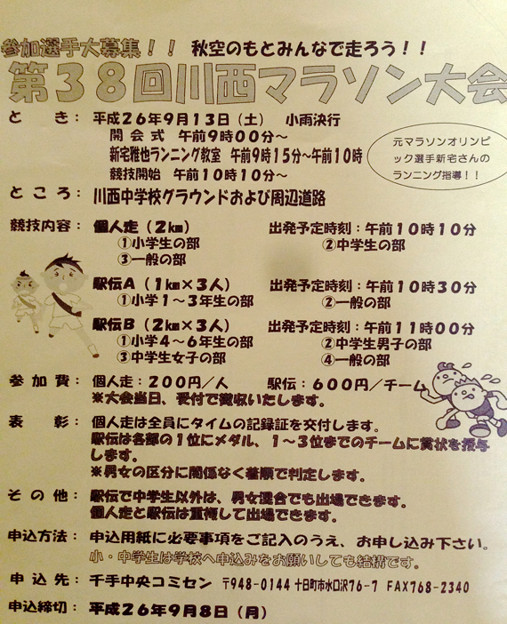 参加選手大募集！！ 秋空のもとみんなで走ろう！！
第３８回川西マラソン大会
と き： 平成２６年９月１３日（土） 小雨決行
開 会 式 午前９時００分～
新宅雅也ランニング教室 午前９時１５分～午前１０時
競技開始 午前１０時１０分～
元マラソンオリンピ
ック選手新宅さんの
ランニング指導！！
ところ： 川西中学校グラウンドおよび周辺道路
競技内容： 個人走（２㎞） 出発予定時刻：午前１０時１０分
①小学生の部 ②中学生の部
③一般の部
駅伝Ａ（１㎞×３人） 出発予定時刻：午前１０時３０分
①小学１～３年生の部 ②一般の部
駅伝Ｂ（２㎞×３人） 出発予定時刻：午前１１時００分
①小学４～６年生の部 ②中学生男子の部
③中学生女子の部 ④一般の部
参 加 費： 個人走：２００円／人 駅伝：６００円／チーム
※大会当日、受付で徴収いたします。
表 彰： 個人走は全員にタイムの記録証を交付します。
駅伝は各部の１位にメダル、１～３位までのチームに賞状を授与
します。
※男女の区分に関係なく着順で判定します。
そ の 他： 駅伝で中学生以外は、男女混合でも出場できます。
個人走と駅伝は重複して出場できます。
申込方法： 申込用紙に必要事項をご記入のうえ、お申し込み下さい。
小・中学生は学校へ申込みをお願いしても結構です。
申 込 先： 千手中央コミセン 〒948-0144 十日町市水口沢76-7 FAX768-2340
申込締切： 平成２６年９月８日（月）